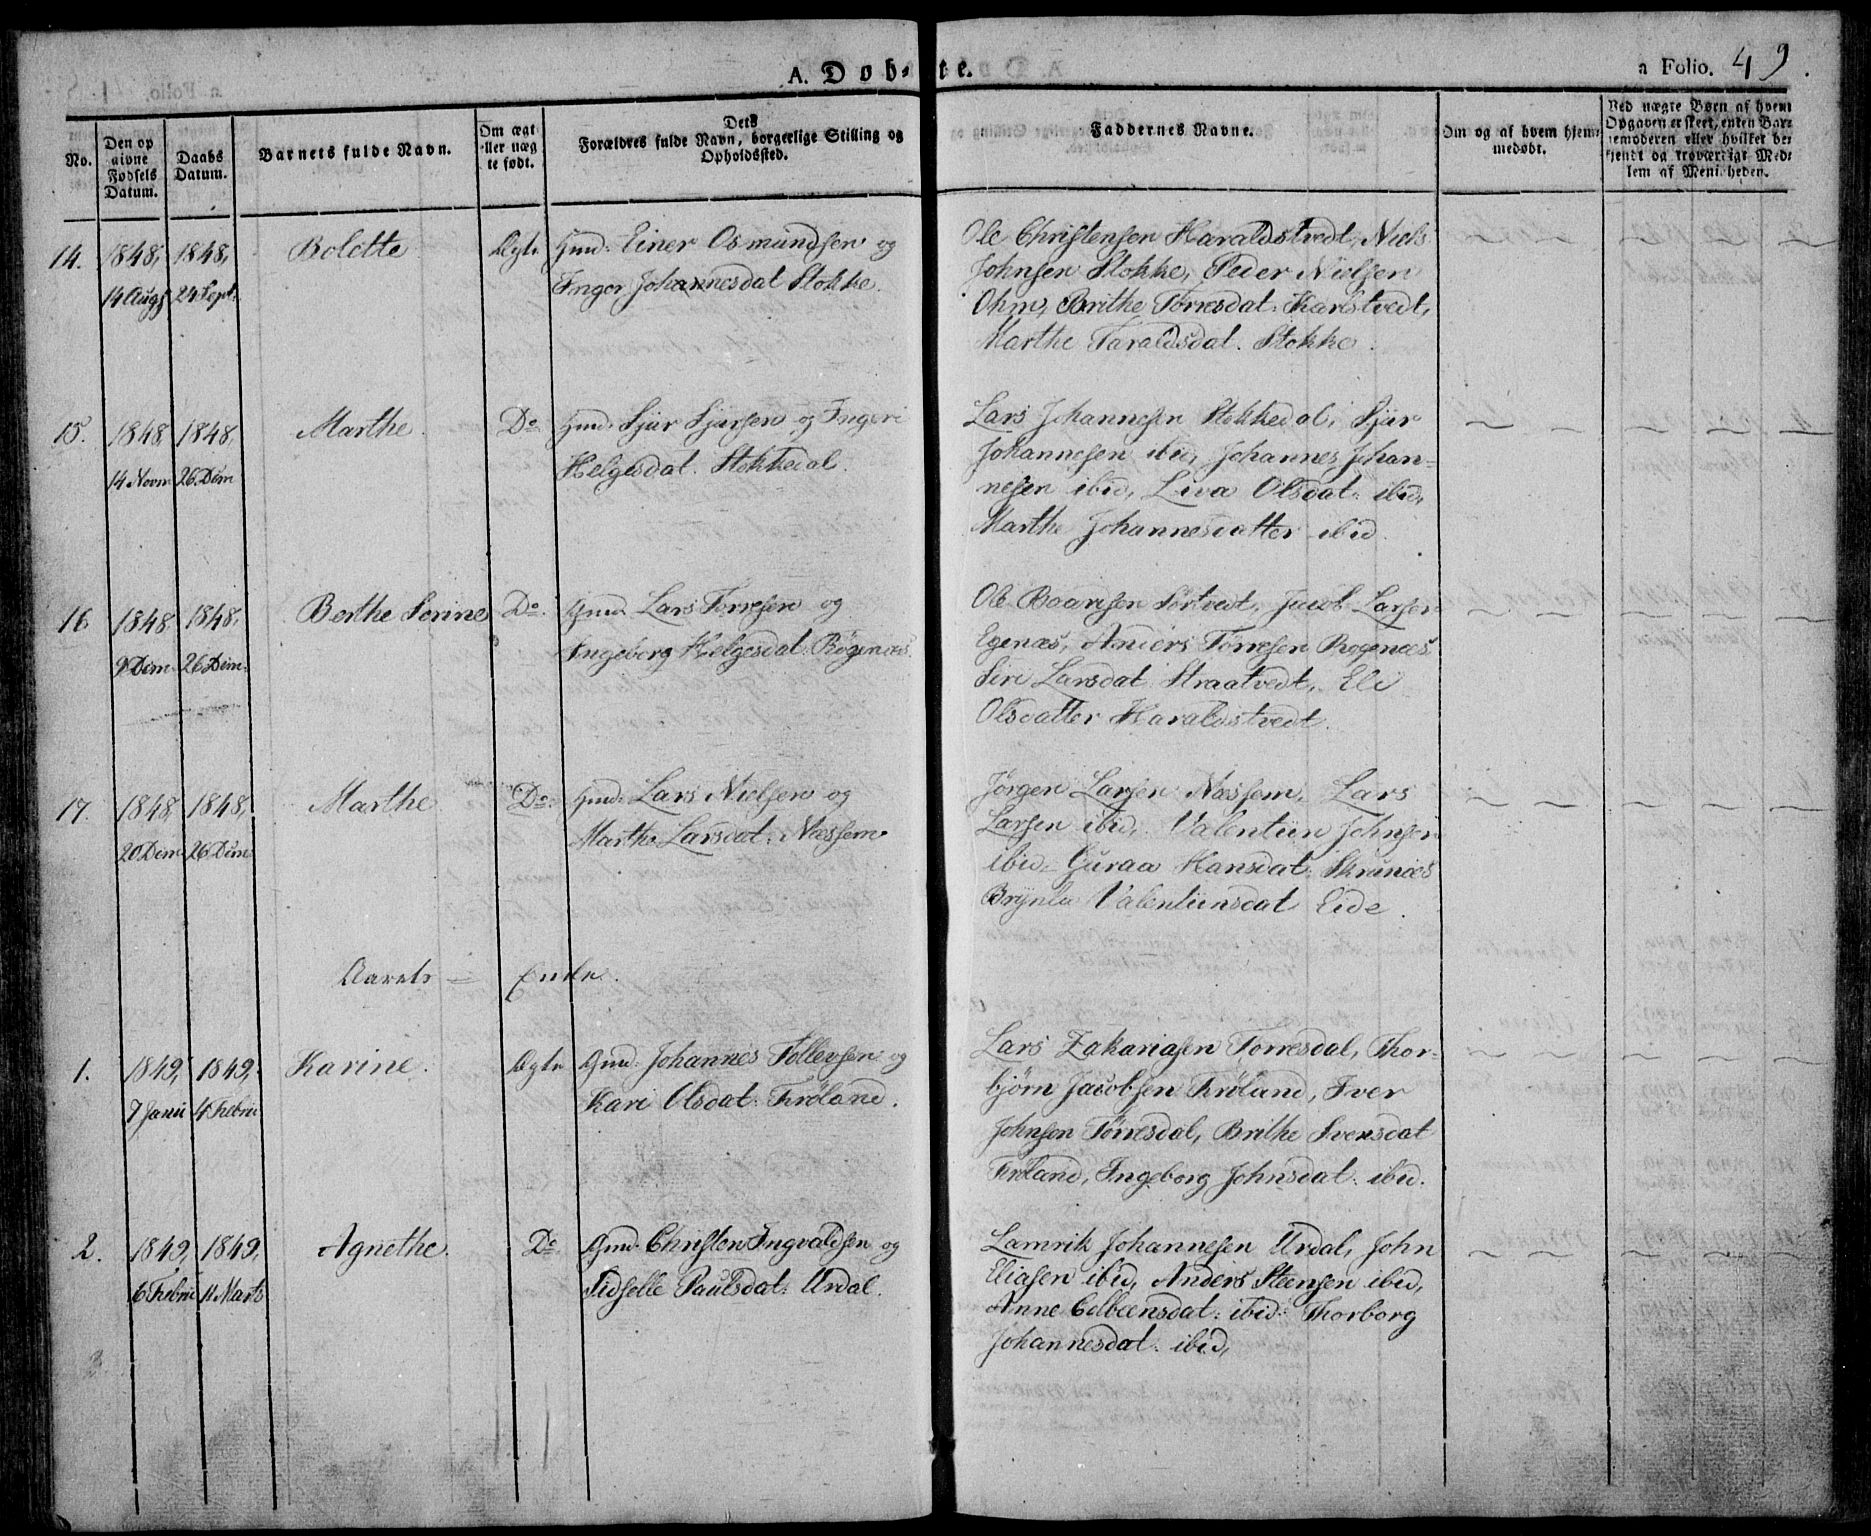 A. Døb-
te.
a Folio. 49.
No.
Den op
givne
Fødsels
Datum.
Daabs
Datum.
Barnets fulde Navn.
Om ægt
eller næg
te født.
Dets
Forældres fulde Navn, borgerlige Stilling og
Opholdssted.
Faddernes Navne.
Om og af hvem hjem-
medøbt.
Ved nægte Børn af hvem
Opgaven er skeet, enten Bar-
nemoderen eller hvilket be-
kjendt og troværdigt Med-
lem af Menigheden.
14.
1848,
14 Augs
1848,
24 Sept.
Bolette
Ægte
Gmd. Einer Osmundsen og
Inger Johannesdat Stokke.
Ole Christensen Haraldstvedt, Niels
Johnsen Stokke, Peder Nielsen
Ohm, Brithe Torresdat. Karlstvedt,
Marthe Taraldsdat. Stokke.
15.
1848
14 Novm
1848,
26 Dcm
Marthe.
Do
Gmd. Sjur Sjursen og Ingeri
Helgesdat. Stokkedal.
Lars Johannesen Stokkedal, Sjur
Johannesen ibid, Johannes Johan-
nesen ibid, Liva Olsdat. ibid,
Marthe Johannesdatter ibid.
16.
1848
9 Dcm
1848,
26 Dcm.
Berthe Serine
Do.
Gmd. Lars Torresen og
Ingeborg Helgesdat. Bögenæs.
Ole Baardsen Sörtvedt, Jacob Larsen
Egenæs, Anders Törresen Bogenæs,
Siri Larsdat. Straatvedt, Eli
Olsdatter Haraldstvedt.
17.
1848,
20 Dcm
1848,
26 Dcm
Marthe
Do.
Gmd. Lars Nielsen og
Marthe Larsdat. Næssem
Jørgen Larsen Næssem, Lars
Larsen ibid, Valentiin Johnsen
ibid, Guraa Hansdat. Skrunæs
Brynla Valentiinsdat Eide.
Aarets — Ende.
1.
1849,
7 Janu
1849,
4 Febru
Karine.
Ægte
Gmd. Johannes Tollevsen og
Kari Olsdat. Fröland.
Lars Zakariasen Torresdal, Thor-
bjørn Jacobsen Fröland, Iver
Johnsen Törresdal, Brithe Svensdat
Fröland, Ingeborg Johnsdat. ibid.
2.
1849,
6 Febru
1849,
11 Marts
Agnethe.
Do
Gmd. Christen Ingvaldsen og
Sidselle Paulsdat. Urdal.
Lamrik Johannesen Urdal, John
Eliasen ibid, Anders Steensen ibid,
Anne Colbeensdat. ibid. Thorborg
Johannesdat. ibid,